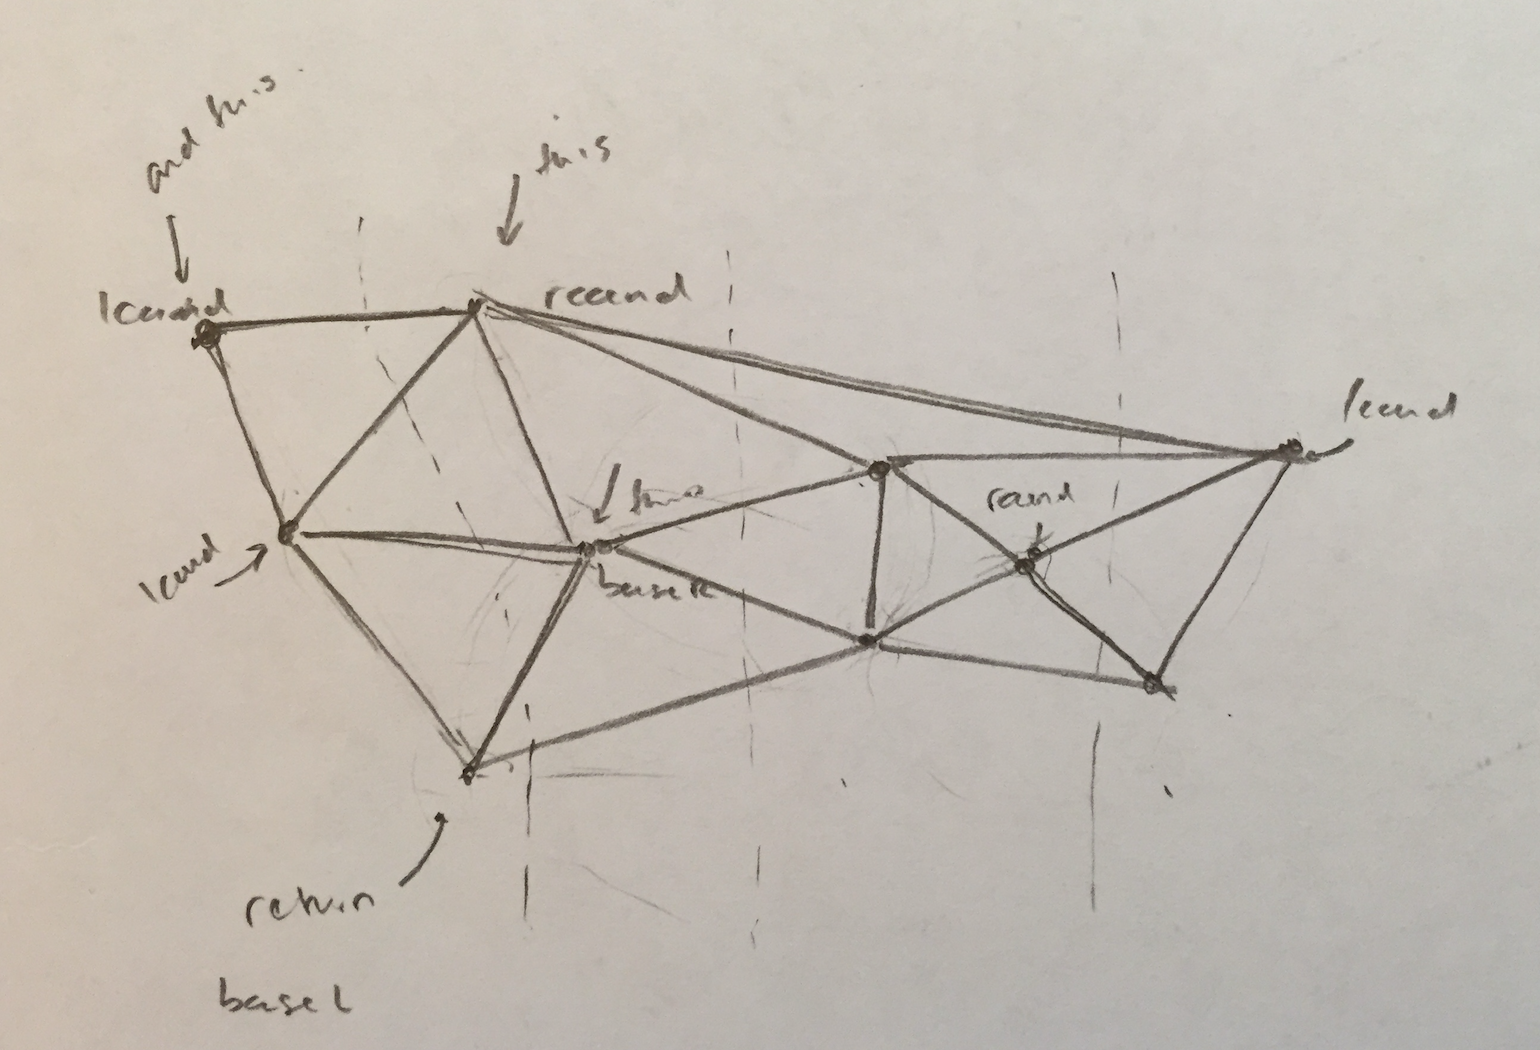 and this
this
lcand
rcand
lcand
rcand
this
lcand
baseR
return
baseL